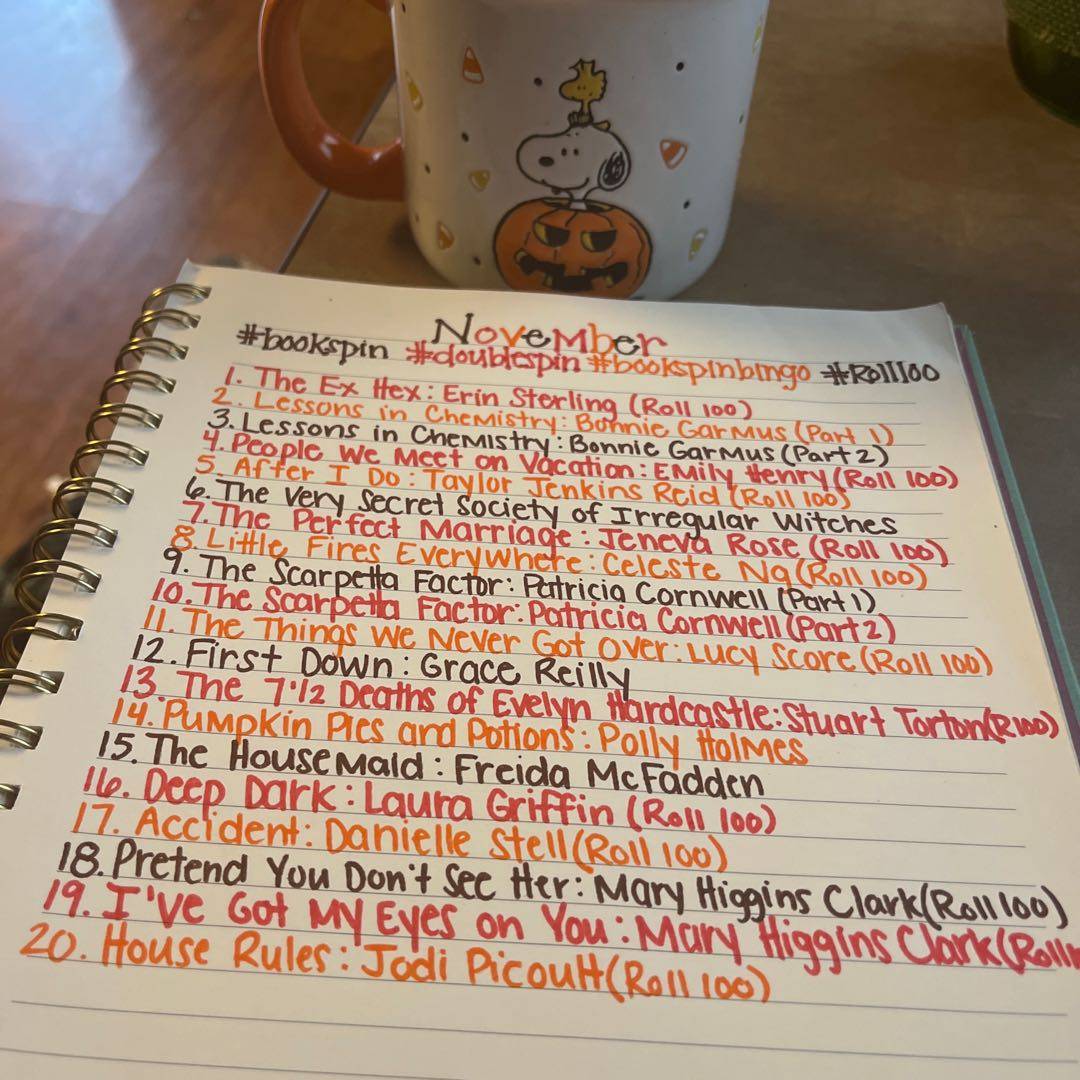 November
#bookspin #doublespin #bookspinbingo #Roll100
1. The Ex Hex: Erin Sterling (Roll 100)
2. Lessons in Chemistry: Bonnie Garmus (Part 1)
3. Lessons in Chemistry: Bonnie Garmus (Part 2)
4. People We Meet on Vacation: Emily Henry (Roll 100)
5. After I Do: Taylor Jenkins Reid (Roll 100)
6. The Very Secret Society of Irregular Witches
7. The Perfect Marriage: Jeneva Rose (Roll 100)
8. Little Fires Everywhere: Celeste Ng (Roll 100)
9. The Scarpetta Factor: Patricia Cornwell (Part 1)
10. The Scarpetta Factor: Patricia Cornwell (Part 2)
11. The Things We Never Got Over: Lucy Score (Roll 100)
12. First Down: Grace Reilly
13. The 7 1/2 Deaths of Evelyn Hardcastle: Stuart Torton (R100)
14. Pumpkin Pies and Potions: Polly Holmes
15. The Housemaid: Freida McFadden
16. Deep Dark: Laura Griffin (Roll 100)
17. Accident: Danielle Stell (Roll 100)
18. Pretend You Don't See Her: Mary Higgins Clark (Roll 100)
19. I've Got My Eyes on You: Mary Higgins Clark (Roll
20. House Rules: Jodi Picoult (Roll 100)